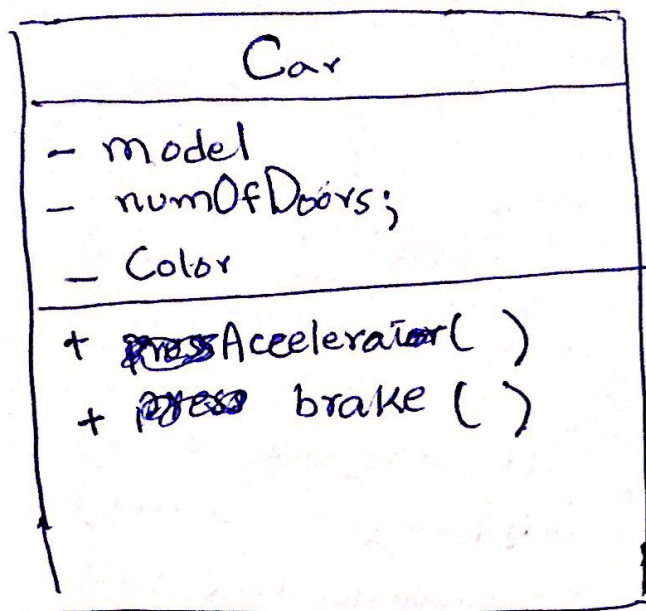 Car
- model
- numOfDoors;
- Color
+ pressAccelerator( )
+ press brake ( )